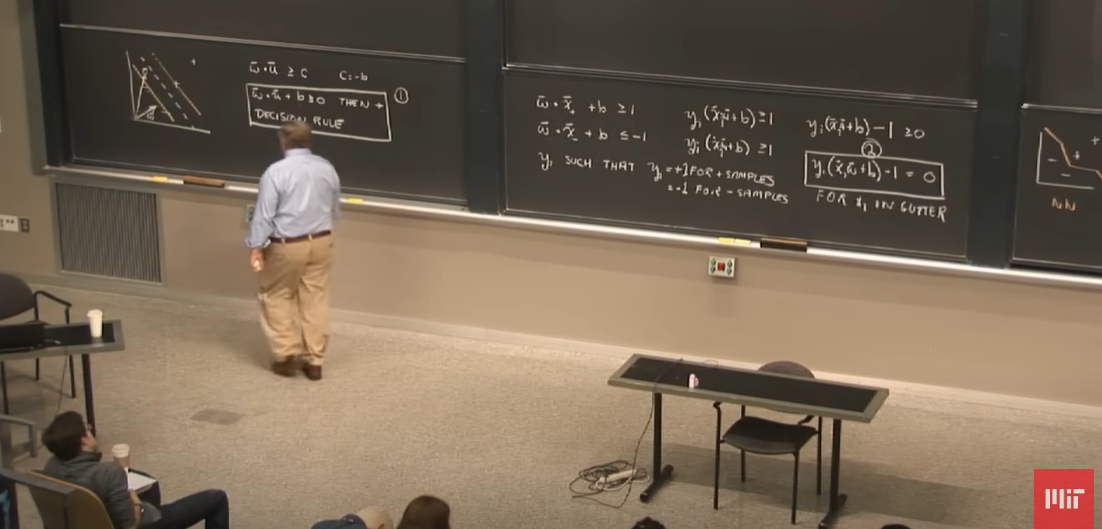 w̄·ū ≥ C   C=-b
w̄·ū + b ≥ 0 THEN +
DECISION RULE
①
w̄·x̄₊ + b ≥ 1
w̄·x̄₋ + b ≤ -1
yᵢ SUCH THAT yᵢ = +1 FOR + SAMPLES
= -1 FOR - SAMPLES
yᵢ(x̄ᵢ·w̄+b) ≥ 1
yᵢ(x̄ᵢ·w̄+b) ≥ 1
yᵢ(x̄ᵢ·w̄+b) - 1 ≥ 0
②
yᵢ(x̄ᵢ·w̄+b) - 1 = 0
FOR xᵢ IN GUTTER
NN
MIT